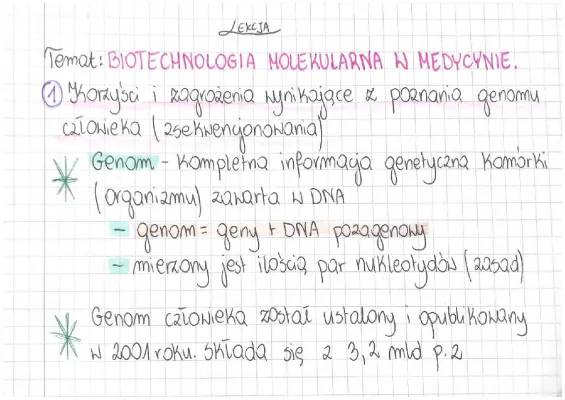 LEKCJA
Temat: BIOTECHNOLOGIA MOLEKULARNA W MEDYCYNIE.
1 Korzyści i zagrożenia wynikające z poznania genomu
człowieka (zsekwencjonowania)
Genom - kompletna informacja genetyczna komórki
(organizmu) zawarta w DNA
- genom = geny + DNA pozagenowy
- mierzony jest ilością par nukleotydów (zasad)
Genom człowieka został ustalony i opublikowany
w 2001 roku. Składa się z 3,2 mld p.z